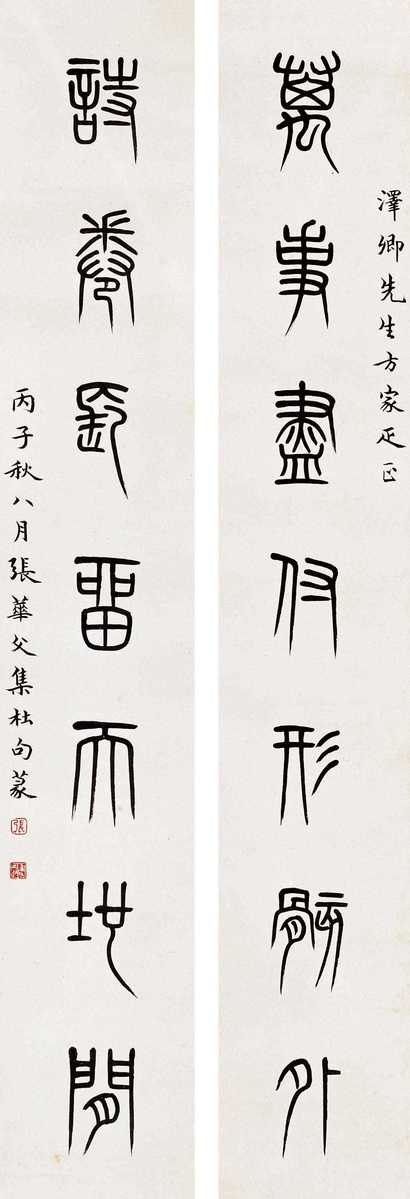 澤卿先生方家疋正
萬事盡付形骸外
詩卷長留天地間
丙子秋八月張華父集杜句篆
張